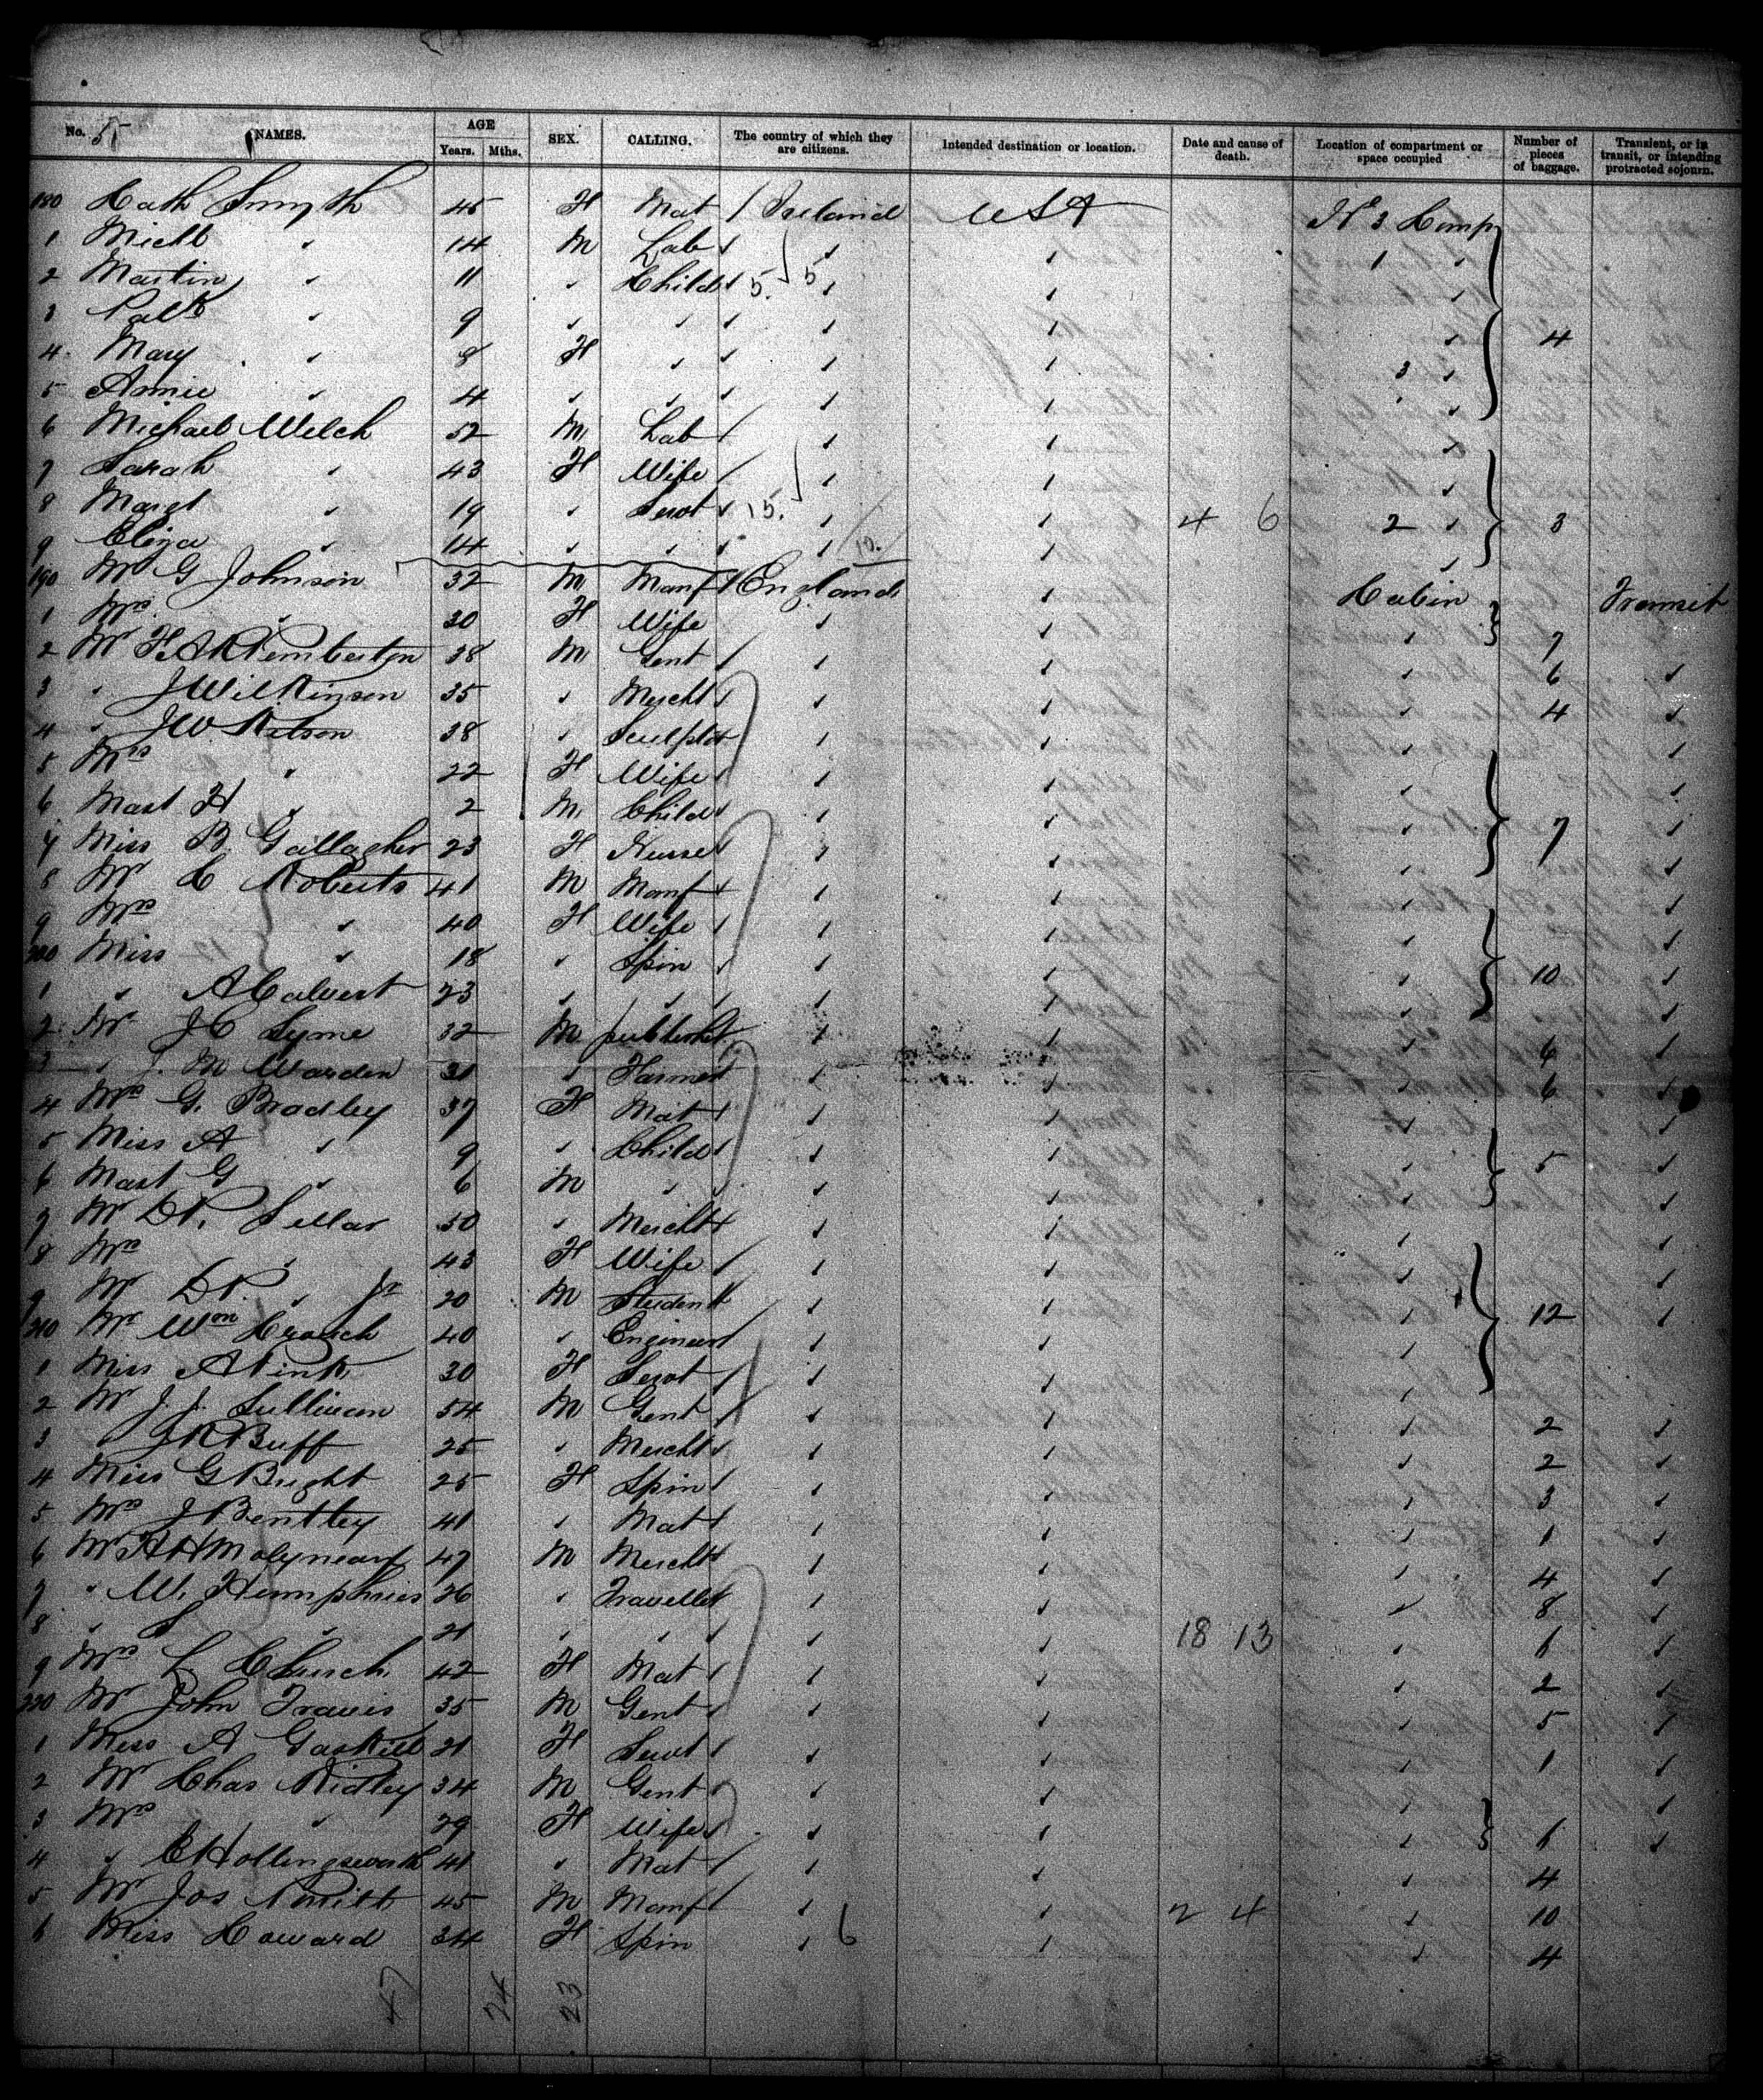 No. 55 NAMES. AGE Years. Mths. SEX. CALLING. The country of which they are citizens. Intended destination or location. Date and cause of death. Location of compartment or space occupied Number of pieces of baggage. Transient, or in transit, or intending protracted sojourn.
180 Cath Smyth 45 F Mat / Ireland USA No 3 Comp
1 Michl " 14 M Lab
2 Martin " 11 " Child 5 5
3 Patk " 9 " "
4 Mary " 8 F " 4
5 Annie " 4 " "
6 Michael Welch 52 M Lab
7 Sarah " 43 F Wife
8 Margt " 19 " Servt 15. 4 6 2 3
9 Eliza " 14 " " 10.
190 Mr G Johnson 32 M Manf England Cabin Transit
1 Mrs " 30 F Wife 7
2 Mr F.A.K Pemberton 38 M Gent 6
3 " J Wilkinson 35 " Mercht 4
4 " J W 38 " Sculptor
5 Mrs " 22 F Wife
6 Mast H " 2 M Child
7 Miss B. Gallagher 23 F Nurse 7
8 Mr C Roberts 41 M Manf
9 Mrs " 40 F Wife
200 Miss " 18 " Spin 10
1 " A Calvert 23 " "
2 Mr J C Syme 32 M publisher 6
3 " J. M Warden 31 " Farmer 6
4 Mrs G. Bradley 37 F Mat
5 Miss A " 9 " Child 5
6 Mast G " 6 M "
7 Mr D.P. Sellar 50 " Mercht
8 Mrs " 43 F Wife
9 Mr D P. " Jr 20 M Student 12
210 Mr Wm Crouch 40 " Engineer
1 Miss A Pink 30 F Servt
2 Mr J. J. Sullivan 54 M Gent 2
3 " J R Buff 25 " Mercht 2
4 Miss G Bright 25 F Spin 3
5 Mrs J Bentley 41 " Mat 1
6 Mr H H Molyneaux 47 M Mercht 4
7 " W. Humphries 26 " Traveller 8
8 " S " 21 " " 18 13 1
9 Mrs L Church 42 F Mat 2
220 Mr John Travis 35 M Gent 5
1 Miss A Gaskill 21 F Servt 1
2 Mr Chas Ridley 34 M Gent
3 Mrs " 29 F Wife 1
4 " E Hollingsworth 41 " Mat 4
5 Mr Jos 45 M Manf 2 4 10
6 Miss Coward 34 F Spin 6 4
47 24 23